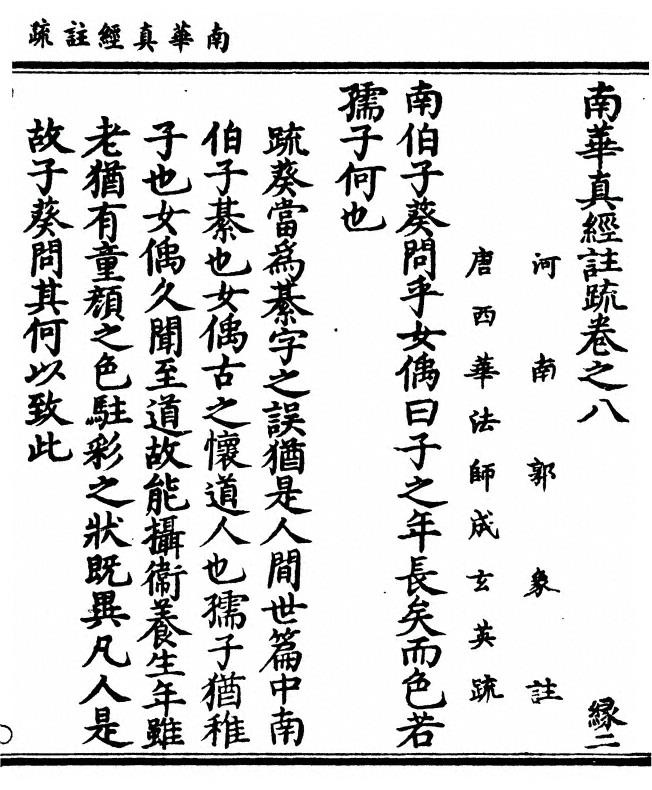 南華真經註疏
南華真經註疏卷之八
緣二
河南郭象註
唐西華法師成玄英疏
南伯子葵問乎女偊曰子之年長矣而色若
孺子何也
疏葵當爲綦字之誤猶是人間世篇中南
伯子綦也女偊古之懷道人也孺子猶稚
子也女偊久聞至道故能攝衞養生年雖
老猶有童顏之色駐彩之狀既異凡人是
故子葵問其何以致此